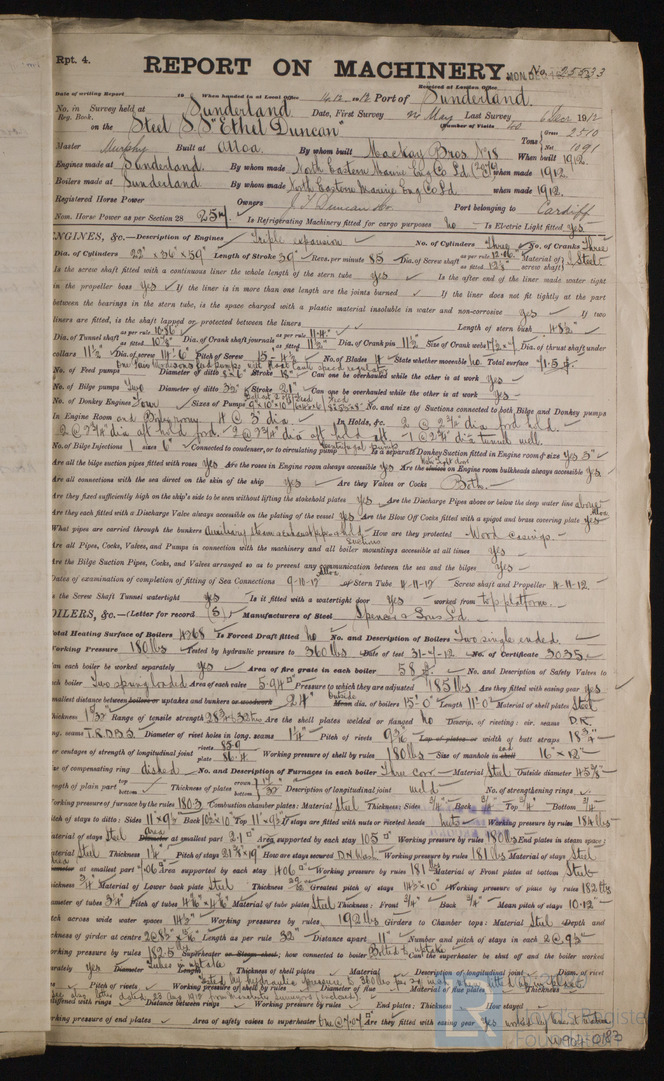 Rpt. 4.
REPORT ON MACHINERY.
No. 25533
MON. DEC
Date of writing Report 19 When handed in at Local Office 14.12.1912 Port of Sunderland.
Received at London Office
No. in Reg. Book. Survey held at Sunderland Date, First Survey 24 May Last Survey 6 Dec 1912
(Number of Visits
on the Steel SS "Ethel Duncan" Tons Gross 2510 Net 1091
Master Murphy Built at Alloa By whom built Mackay Bros. No 18 When built 1912.
Engines made at Sunderland By whom made North Eastern Marine Eng Co. Ld when made 1912.
Boilers made at Sunderland By whom made North Eastern Marine Eng Co Ld when made 1912.
Registered Horse Power Owners J. T. Duncan & Co. Port belonging to Cardiff
Nom. Horse Power as per Section 28 257 Is Refrigerating Machinery fitted for cargo purposes no Is Electric Light fitted yes
ENGINES, &c.—Description of Engines Triple expansion No. of Cylinders Three No. of Cranks Three
Dia. of Cylinders 22" × 36" × 59" Length of Stroke 39" Revs. per minute 85 Dia. of Screw shaft as per rule 12.06 as fitted 12 7/8" Material of screw shaft Steel
Is the screw shaft fitted with a continuous liner the whole length of the stern tube yes Is the after end of the liner made water tight
in the propeller boss yes If the liner is in more than one length are the joints burned If the liner does not fit tightly at the part
between the bearings in the stern tube, is the space charged with a plastic material insoluble in water and non-corrosive yes If two
liners are fitted, is the shaft lapped or protected between the liners Length of stern bush 48½"
Dia. of Tunnel shaft as per rule 10.36" as fitted 10 7/8" Dia. of Crank shaft journals as per rule 11.4" as fitted 11½" Dia. of Crank pin 11½" Size of Crank webs Dia. of thrust shaft under
collars 11½" Dia. of screw 14'-6" Pitch of Screw 15-4½ No. of Blades 4 State whether moveable no Total surface 71.5 ft
No. of Feed pumps Diameter of ditto Stroke 18" Can one be overhauled while the other is at work yes
No. of Bilge pumps Two Diameter of ditto 3½" Stroke 21" Can one be overhauled while the other is at work yes
No. of Donkey Engines Four Sizes of Pumps No. and size of Suctions connected to both Bilge and Donkey pumps
In Engine Room and Boiler room 4 @ 3" dia. In Holds, &c. 2 @ 2¾" dia ford. hold.
2 @ 2¾" dia aft hold ford. 2 @ 2¾" dia aft hold aft. 1 @ 2¾" dia tunnel well.
No. of Bilge Injections 1 sizes 6" Connected to condenser, or to circulating pump Centrifugal pump Is a separate Donkey Suction fitted in Engine room & size yes 3"
Are all the bilge suction pipes fitted with roses yes Are the roses in Engine room always accessible yes Are the on Engine room bulkheads always accessible yes
Are all connections with the sea direct on the skin of the ship yes Are they Valves or Cocks Both.
Are they fixed sufficiently high on the ship's side to be seen without lifting the stokehold plates yes Are the Discharge Pipes above or below the deep water line above
Are they each fitted with a Discharge Valve always accessible on the plating of the vessel yes Are the Blow Off Cocks fitted with a spigot and brass covering plate yes
What pipes are carried through the bunkers Auxiliary steam & exhaust pipes & hold suctions How are they protected Wood casings.
Are all Pipes, Cocks, Valves, and Pumps in connection with the machinery and all boiler mountings accessible at all times yes
Are the Bilge Suction Pipes, Cocks, and Valves arranged so as to prevent any communication between the sea and the bilges yes
Dates of examination of completion of fitting of Sea Connections 9-10-12 of Stern Tube 4-11-12 Screw shaft and Propeller 4-11-12.
Is the Screw Shaft Tunnel watertight yes Is it fitted with a watertight door yes worked from top platform.
BOILERS, &c.—(Letter for record (S)) Manufacturers of Steel Spencer & Sons Ld.
Total Heating Surface of Boilers 4268 Is Forced Draft fitted no No. and Description of Boilers Two single ended.
Working Pressure 180 lbs Tested by hydraulic pressure to 360 lbs Date of test 31-7-12 No. of Certificate 3035
Can each boiler be worked separately yes Area of fire grate in each boiler 58 ft. No. and Description of Safety Valves to
each boiler Two spring loaded Area of each valve 5.94" Pressure to which they are adjusted 185 lbs Are they fitted with easing gear yes
Smallest distance between boilers or uptakes and bunkers or woodwork 24" Outside dia. of boilers 15'-0" Length 11'-0" Material of shell plates Steel
Thickness Range of tensile strength Are the shell plates welded or flanged no Descrip. of riveting: cir. seams D.R.
long. seams T.R.D.B.S. Diameter of rivet holes in long. seams 1¼" Pitch of rivets Lap of plates or width of butt straps 18¾"
Per centages of strength of longitudinal joint rivets 85.9 plate 86.4 Working pressure of shell by rules 180 lbs Size of manhole in end 16" × 12"
Size of compensating ring dished No. and Description of Furnaces in each boiler Three cor. Material Steel Outside diameter 45 5/8"
Length of plain part top bottom Thickness of plates crown bottom Description of longitudinal joint weld No. of strengthening rings
Working pressure of furnace by the rules 180.3 Combustion chamber plates: Material Steel Thickness: Sides 3/4" Back 3/4" Top 3/4" Bottom 3/4"
Pitch of stays to ditto: Sides Back Top If stays are fitted with nuts or riveted heads nuts Working pressure by rules 184 lbs
Material of stays Steel area at smallest part 2.1" Area supported by each stay 105 Working pressure by rules 180 lbs End plates in steam space:
Material Steel Thickness 1¼" Pitch of stays How are stays secured D.N. & Wash. Working pressure by rules 181 lbs Material of stays Steel
area at smallest part Area supported by each stay 406 Working pressure by rules 181 lbs Material of Front plates at bottom Steel
Thickness 3/4" Material of Lower back plate Steel Thickness Greatest pitch of stays Working pressure of plate by rules 182 lbs
Diameter of tubes 3¼" Pitch of tubes Material of tube plates Steel Thickness: Front 3/4" Back 3/4" Mean pitch of stays 10.12"
Pitch across wide water spaces 14½" Working pressures by rules 192 lbs Girders to Chamber tops: Material Steel Depth and
thickness of girder at centre Length as per rule 32" Distance apart 11" Number and pitch of stays in each 2 @ 9½"
Working pressure by rules 182.5 lbs Superheater or Steam chest; how connected to boiler Bolted to uptake Can the superheater be shut off and the boiler worked
separately yes Diameter Length Thickness of shell plates Material Description of longitudinal joint Diam. of rivet
holes Pitch of rivets Working pressure of shell by rules Diameter of flue Material of flue plates Thickness
Stiffened with rings Distance between rings Working pressure by rules End plates: Thickness How stayed
Working pressure of end plates Area of safety valves to superheater Are they fitted with easing gear yes
Lloyd's Register Foundation
W904-0183